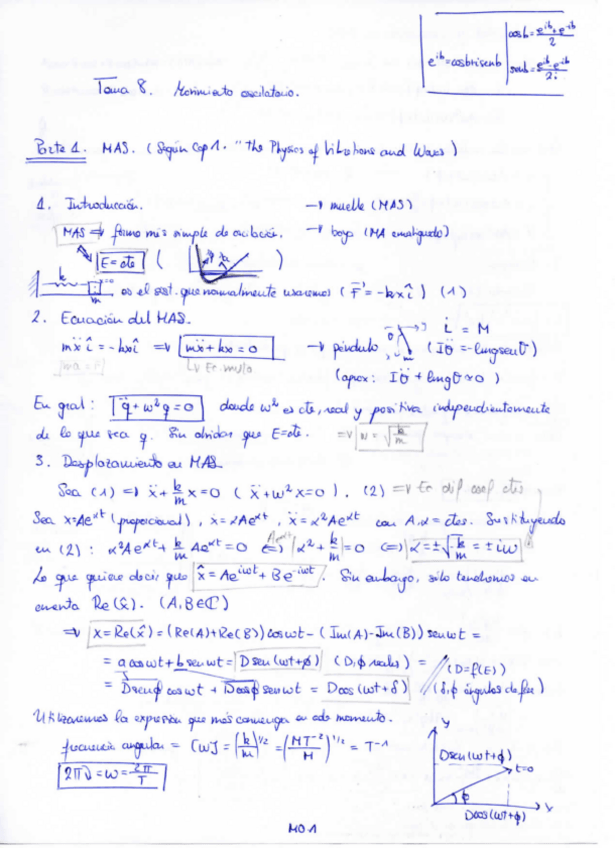 e^{ib} = cosb+isenb
cosb = (e^{ib}+e^{-ib})/2
senb = (e^{ib}-e^{-ib})/2i
Tema 8. Movimiento oscilatorio.
Parte 1. MAS. (Según Cap 1. "The Physics of Vibrations and Waves")
1. Introducción. → muelle (MAS)
MAS ⇒ forma más simple de oscilación. → boya (MA amortiguado)
E = cte
k m es el sist. que normalmente usaremos (F = -kx î) (1)
2. Ecuación del MAS.
mẍ î = -kx î ⇒ mẍ + kx = 0 → péndulo L̇ = M (Iθ̈ = -lmg senθ)
(aprox: Iθ̈ + lmgθ ≈ 0)
En gral: q̈ + w²q = 0 donde w² es cte, real y positiva independientemente
de lo que sea q. Sin olvidar que E=cte. ⇒ w = √(k/m)
3. Desplazamiento en MAS
Sea (1) ⇒ ẍ + (k/m) x = 0 (ẍ + w²x = 0). (2) ⇒ Ec dif coef ctes
Sea x = Ae^{αt} (proporcional), ẋ = αAe^{αt}, ẍ = α²Ae^{αt} con A, α = ctes. Sustituyendo
en (2): α²Ae^{αt} + (k/m) Ae^{αt} = 0 ⇔ α² + k/m = 0 ⇔ α = ±√(-k/m) = ± iw
Lo que quiere decir que x̂ = Ae^{iwt} + Be^{-iwt}. Sin embargo, sólo tendremos en
cuenta Re(x̂). (A, B ∈ ℂ)
⇒ x = Re(x̂) = (Re(A) + Re(B)) cos wt - (Im(A) - Im(B)) sen wt =
= a cos wt + b sen wt = D sen (wt + φ) (D, φ reales) = (D = f(E))
= D sen φ cos wt + D cos φ sen wt = D cos (wt + δ) (δ, φ ángulos de fase)
Utilizaremos la expresión que más convenga en cada momento.
frecuencia angular = [w] = (k/m)^{1/2} = (MT⁻²/M)^{1/2} = T⁻¹
2πν = w = 2π/T
y
D sen (wt + φ)
t=0
φ
x
D cos (wt + φ)
MO 1